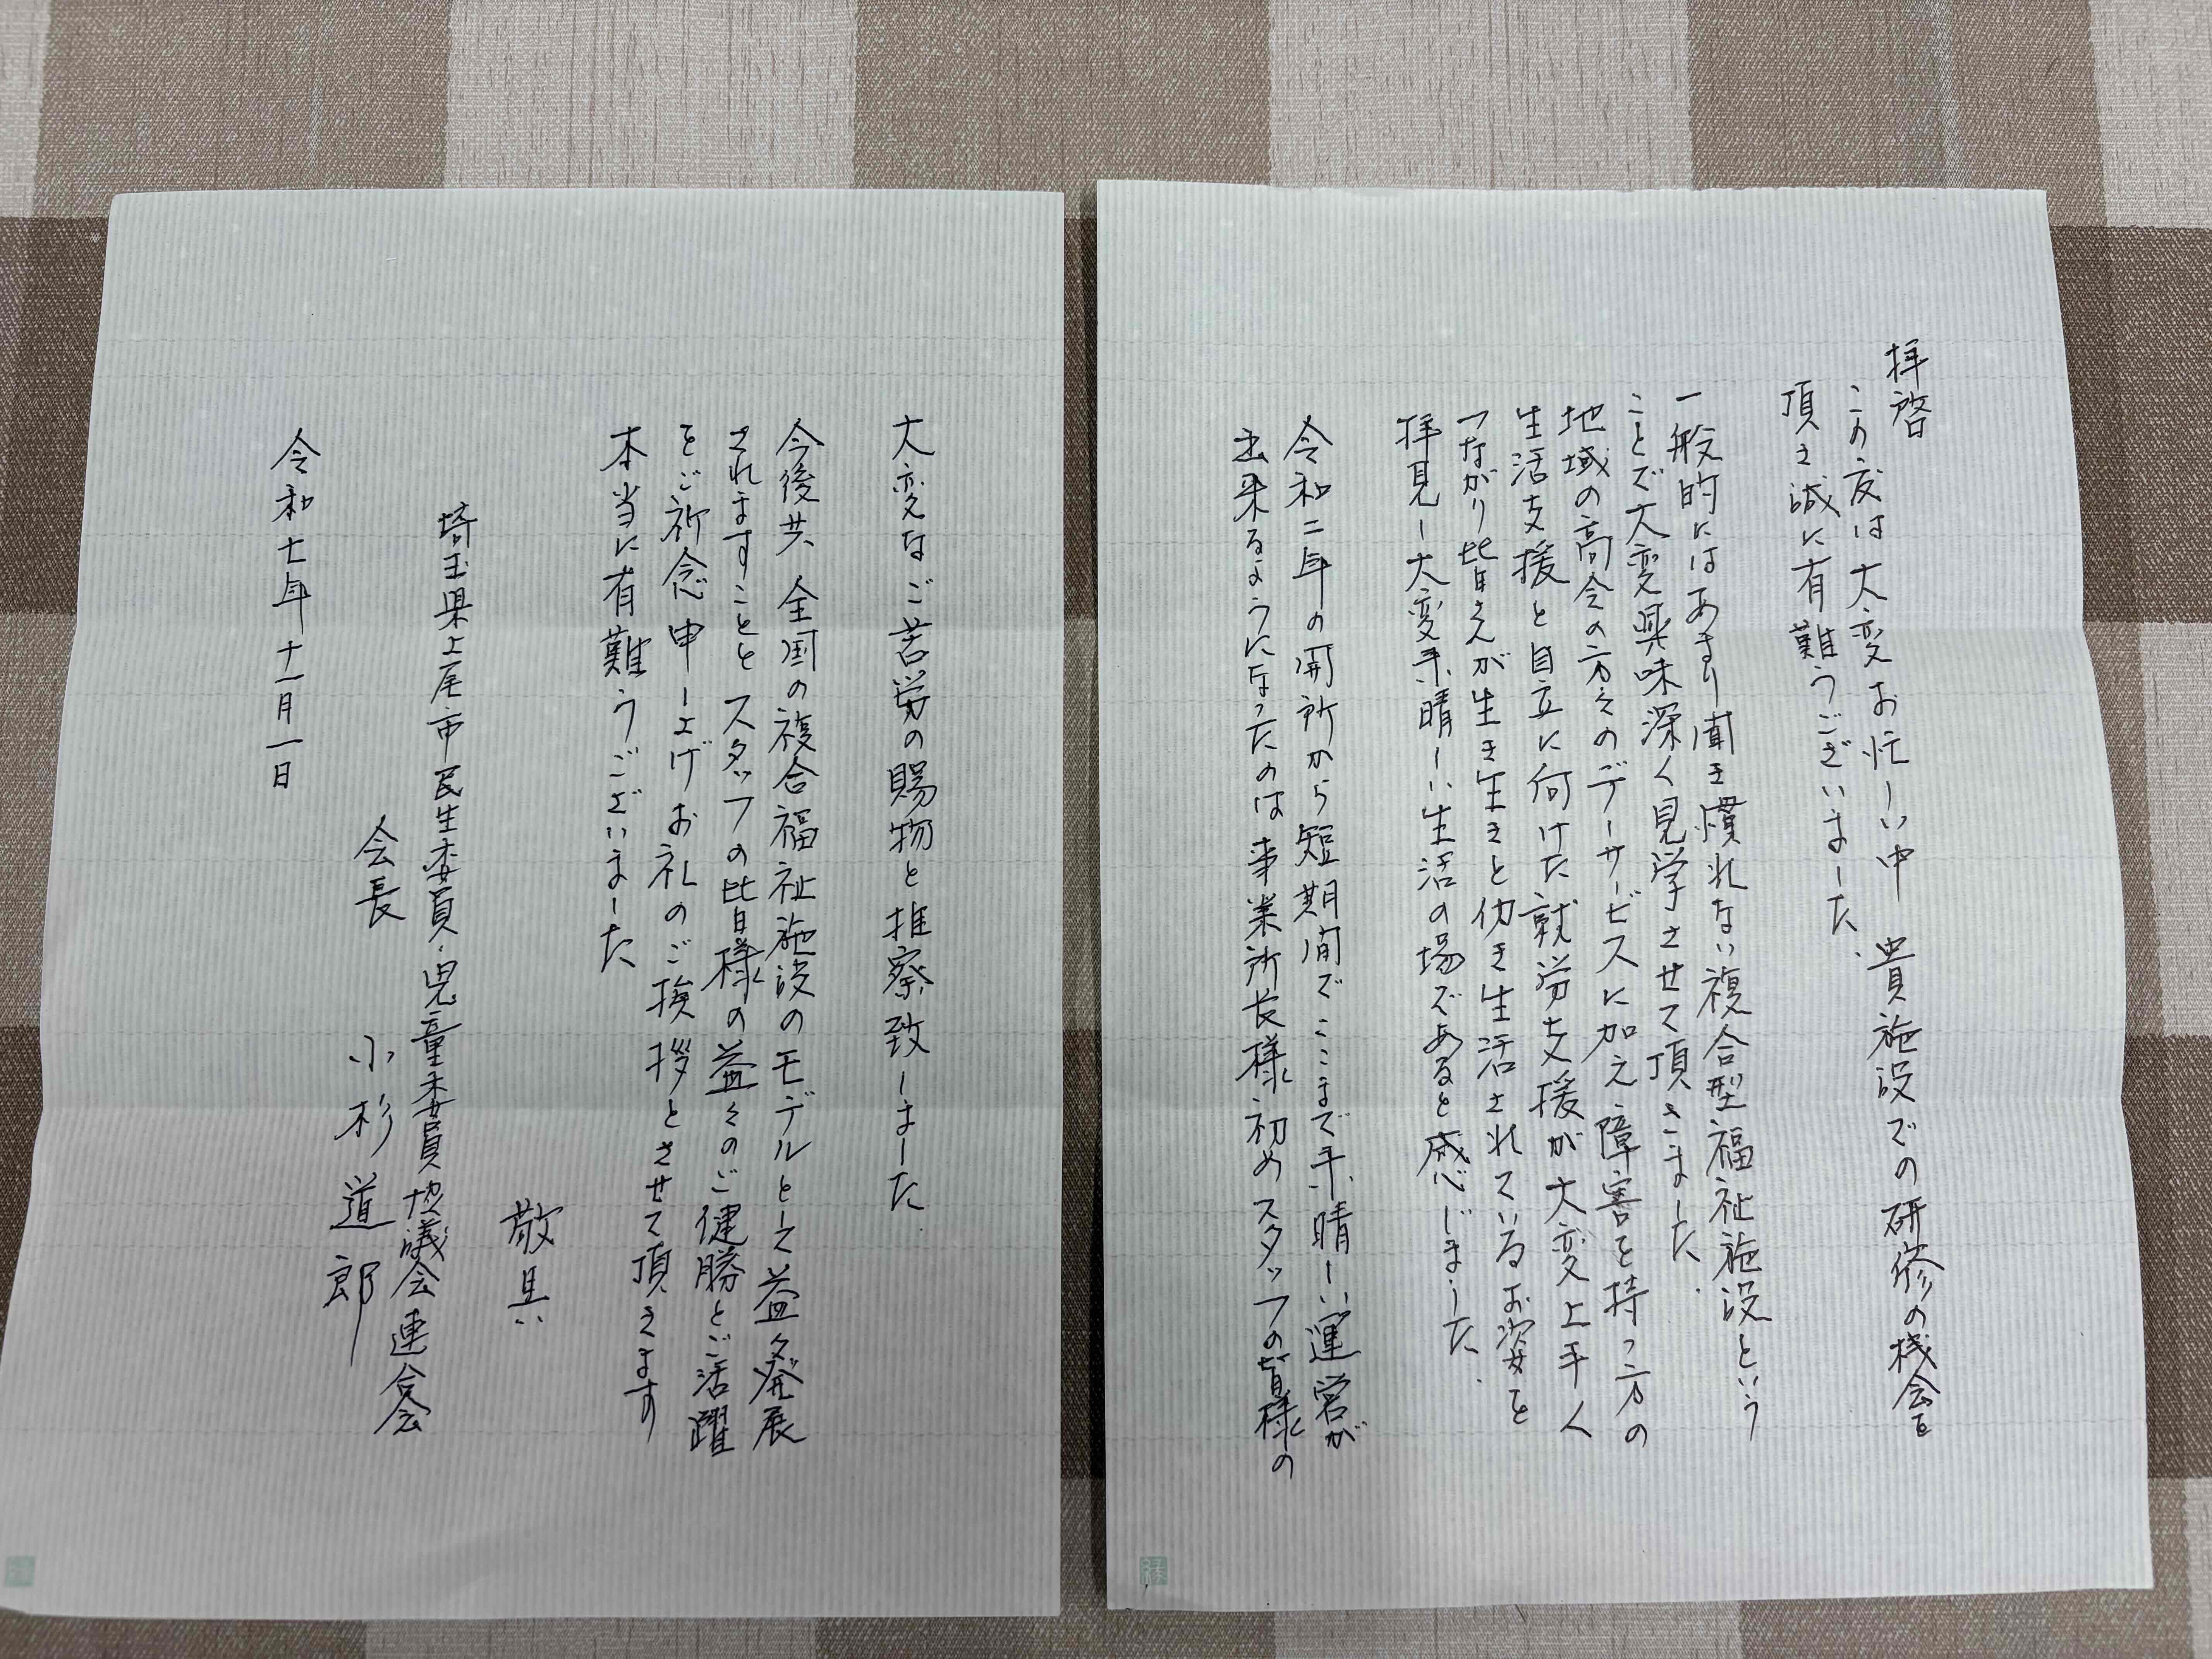 拝啓
この度は大変お忙しい中 貴施設での研修の機会を
頂き誠に有難うございました.
一般的にはあまり聞き慣れない複合型福祉施設という
ことで大変興味深く見学させて頂きました.
地域の高令の方々のデーサービスに加え障害を持つ方の
生活支援と自立に向けた就労支援が大変上手く
つながり皆さんが生き生きと働き生活されているお姿を
拝見し大変素晴しい生活の場であると感じました.
令和二年の開所から短期間でここまで素晴しい運営が
出来るようになったのは事業所長様初めスタッフの皆様の
大変なご苦労の賜物と推察致しました.
今後共 全国の複合福祉施設のモデルとして益々発展
されますことと スタッフの皆様の益々のご健勝とご活躍
をご祈念申し上げお礼のご挨拶とさせて頂きます
本当に有難うございました
敬具
埼玉県上尾市民生委員・児童委員協議会連合会
会長 小杉 道郎
令和七年十一月一日